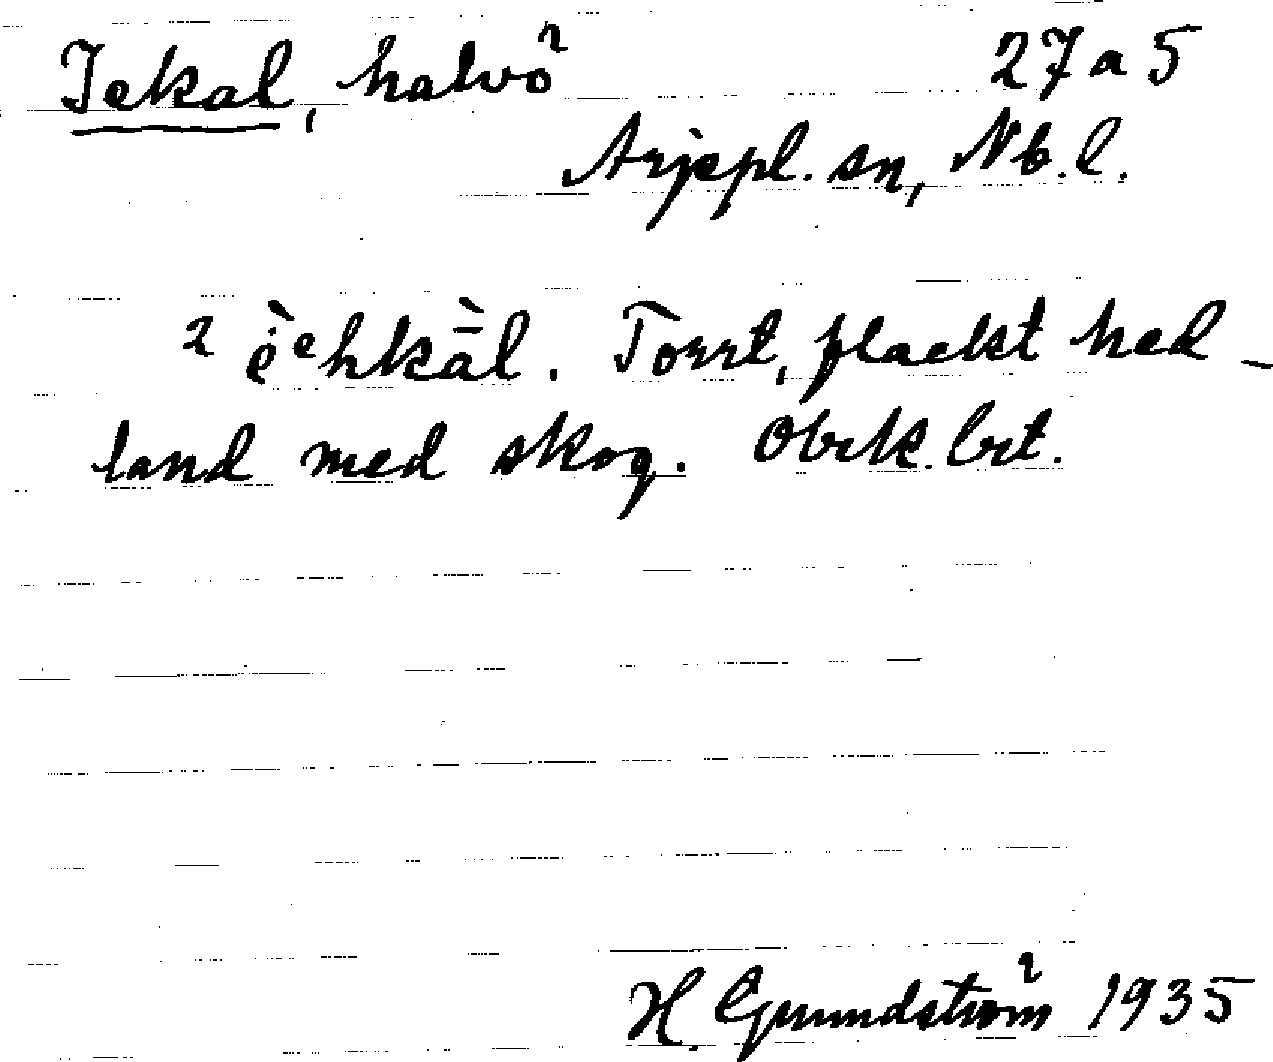 Jekal, halvö 27 a 5
Arjepl. sn, Nb. l.
2 ė̀ehkā̀l. Torrt, flackt hed-
land med skog. Obrk. brt.
H. Grundström 1935